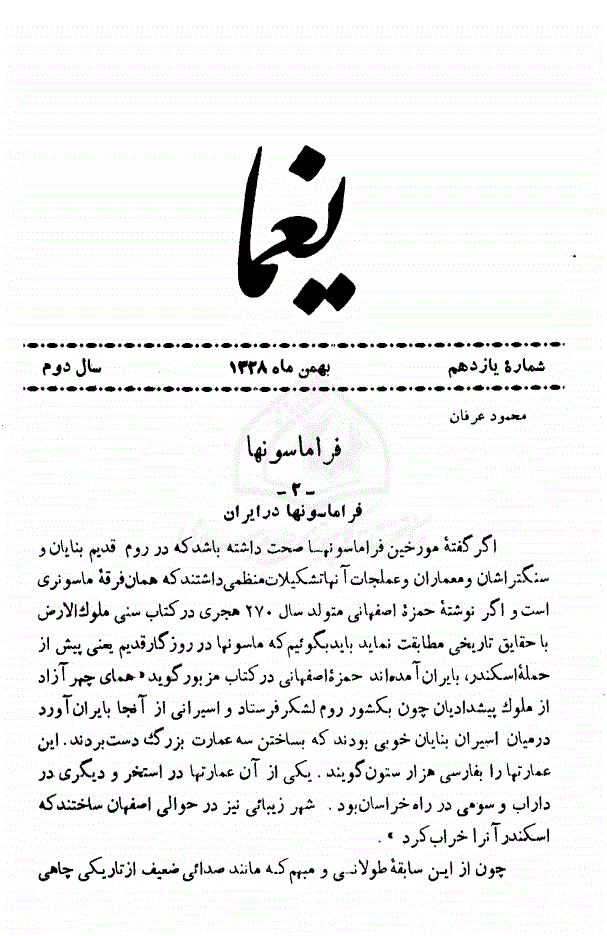 یغما
شمارهٔ یازدهم بهمن ماه ۱۳۲۸ سال دوم
محمود عرفان
فراماسونها
-۲-
فراماسونها در ایران
اگر گفتهٔ مورخین فراماسونها صحت داشته باشد که در روم قدیم بنایان و
سنگتراشان و معماران و عملجات آنها تشکیلات منظمی داشتند که همان فرقهٔ ماسونری
است و اگر نوشتهٔ حمزهٔ اصفهانی متولد سال ۲۷۰ هجری در کتاب سنی ملوك الارض
با حقایق تاریخی مطابقت نماید باید بگوئیم که ماسونها در روزگار قدیم یعنی پیش از
حملهٔ اسکندر، بایران آمده‌اند حمزهٔ اصفهانی در کتاب مزبور گوید « همای چهر آزاد
از ملوك پیشدادیان چون بکشور روم لشکر فرستاد و اسیرانی از آنجا بایران آورد
درمیان اسیران بنایان خوبی بودند که بساختن سه عمارت بزرگ دست بردند. این
عمارتها را بفارسی هزار ستون گویند . یکی از آن عمارتها در استخر و دیگری در
داراب و سومی در راه خراسان بود . شهر زیبائی نیز در حوالی اصفهان ساختند که
اسکندر آنرا خراب کرد » .
چون از این سابقهٔ طولانی و مبهم که مانند صدائی ضعیف از تاریکی چاهی